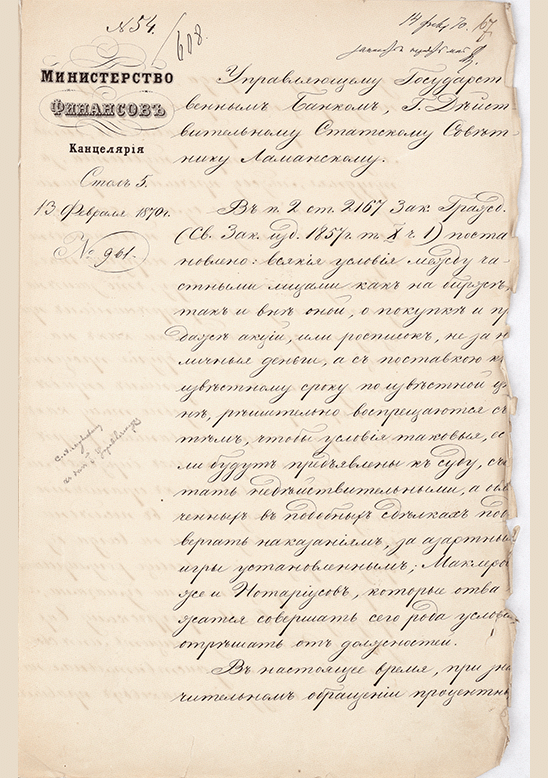 № 54.
608.
14 февр. 70. 67
Министерство
Финансовъ
Канцелярія
Столъ 5.
13 Февраля 1870 г.
№ 961.
Управляющему Государст
веннымъ Банкомъ, Г. Дѣйст
вительному Статскому Совѣт
нику Ламанскому.
Въ п. 2 ст. 2167 Зак. Гражд.
(Св. Зак. изд. 1857 г. т. X ч. 1) поста
новлено: всякія условія между ча
стными лицами какъ на биржѣ,
такъ и внѣ оной, о покупкѣ и пр
дажѣ акцій, или росписокъ, не за н
личныя деньги, а съ поставкою къ
извѣстному сроку по извѣстной ц
нѣ, рѣшительно воспрещаются съ
тѣмъ, чтобы условія таковыя, ес
ли будутъ предъявлены къ суду, сч
тать недѣйствительными, а обл
ченныхъ въ подобныхъ сдѣлкахъ под
вергать наказаніямъ, за азартныя
игры установленнымъ; Маклеро
же и Нотаріусовъ, которые отва
жатся совершать сего рода услові
отрѣшать отъ должностей.
Въ настоящее время, при зна
чительномъ обращеніи процентны